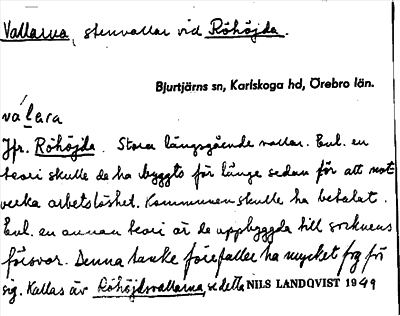 Vallarna, stenvallar vid Röhöjda.
Bjurtjärns sn, Karlskoga hd, Örebro län.
Jfr. Röhöjda. Stora långsgående vallar. Enl. en
teori skulle de ha byggts för länge sedan för att mot-
verka arbetslöshet. Kommunen skulle ha betalat.
Enl. en annan teori är de uppbyggda till socknens
försvar. Denna tanke förefaller ha mycket fog för
sig. Kallas äv Röhöjdsvallarna, se detta NILS LANDQVIST 1949